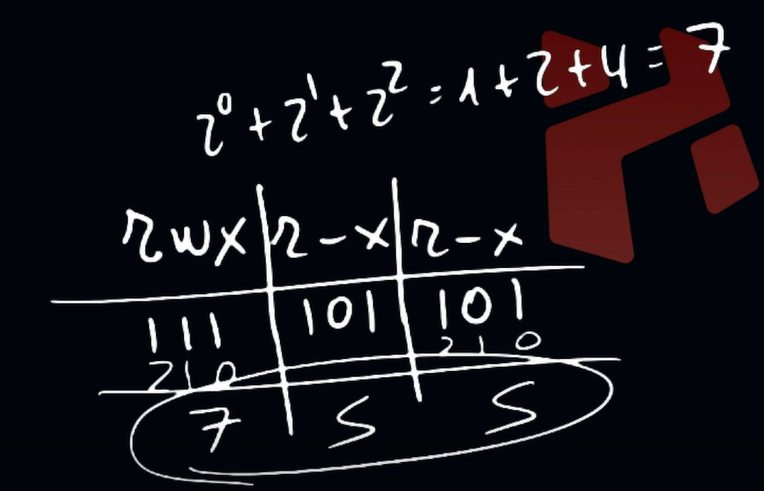 2⁰+2¹+2²=1+2+4=7
rwx|r-x|r-x
111|101|101
210 210
7 5 5